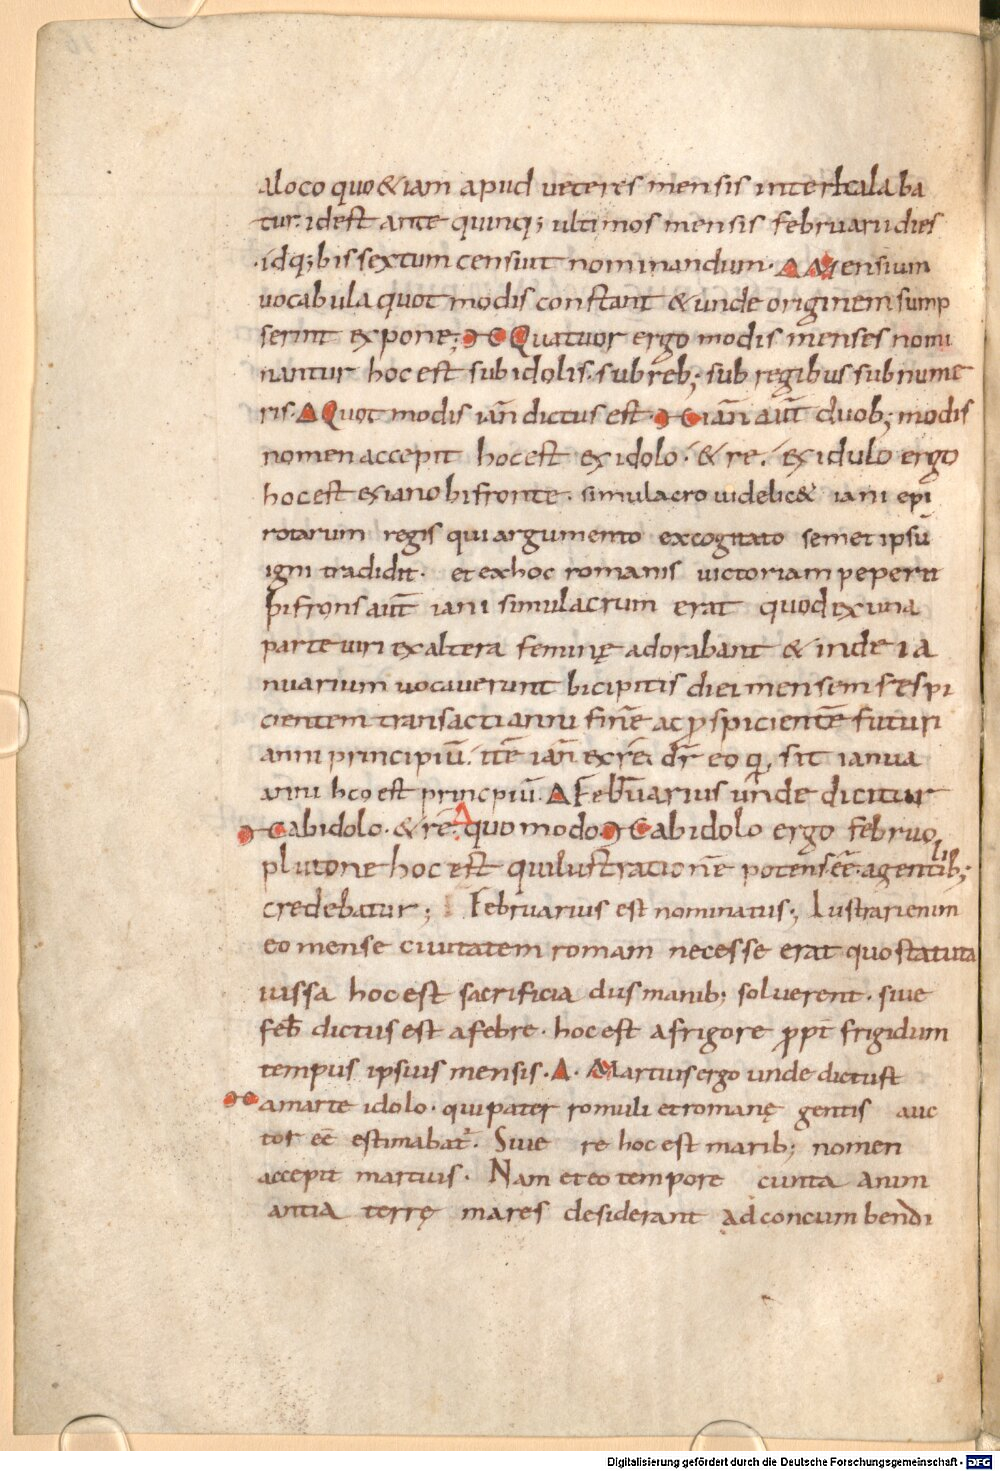 aloco quo &iam apud veteres mensis interkalaba
tur. idest ante quinq; ultimos mensis februarii dies
.idq; bissextum censuit nominandum. Δ Mensium
vocabula quot modis constant & unde originem sump
serint expone; Quatuor ergo modis menses nomi
nantur hoc est sub idolis. sub reb; sub regibus sub nume
ris. Δ Quot modis iañ dictus est. iañ aut̄ duob; modis
nomen accepit hoc est ex idolo. & re. ex idulo ergo
hoc est exiano bifronte. simulacro videlic& iani epi
rotarum regis qui argumento excogitato semetipsū
igni tradidit. et exhoc romanis victoriam peperit
bifrons aut̄ iani simulacrum erat quod ex una
parte viri ex altera feminę adorabant & inde ia
nuarium vocaverunt bicipitis diei mensem respi
cientem transacti anni finē ac ꝓspicientē futuri
anni principiū. itē iañ ex rē. dr̄ eo q, sit ianua
anni hco est princpiū. Δ Feb̄ruarius unde dicitur
abidolo. & rē. Δ quo modo. abidolo ergo februo,
plutone hoc est qui lustrationē potens. eē. agentib;
credebatur; Februarius est nominatus; lustrari enim
eo mense civitatem romam necesse erat quo statuta
iussa hoc est sacrificia diis manib; solverent. sive
feb̄ dictus est afebre. hoc est afrigore ꝓpt̄ frigidum
tempus ipsius mensis. Δ. Martius ergo unde dictust
amarte idolo. qui pater romuli et romanę gentis auc
tor eē estimabat̄. Sive re hoc est marib; nomen
accepit martius. Nam et eo tempore cunta anim
antia terrę mares desiderant ad concumbendi
Digitalisierung gefördert durch die Deutsche Forschungsgemeinschaft - DFG